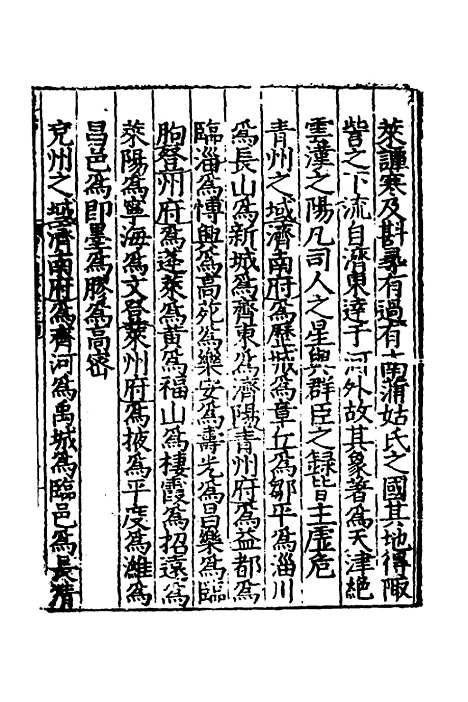 萊譚寒及斟尋有過有南蒲姑氏之國其地得陬
訾之下流自濟東達于河外故其象著爲天津絕
雲漢之陽凡司人之星與群臣之錄皆主虛危
青州之域濟南府爲歷城爲章丘爲鄒平爲淄川
爲長山爲新城爲齊東爲濟陽青州府爲益都爲
臨淄爲博興爲高苑爲樂安爲壽光爲昌樂爲臨
朐登州府爲蓬萊爲黃爲福山爲棲霞爲招遠爲
萊陽爲寧海爲文登萊州府爲掖爲平度爲濰爲
昌邑爲即墨爲膠爲高密
兗州之域濟南府爲齊河爲禹城爲臨邑爲長清